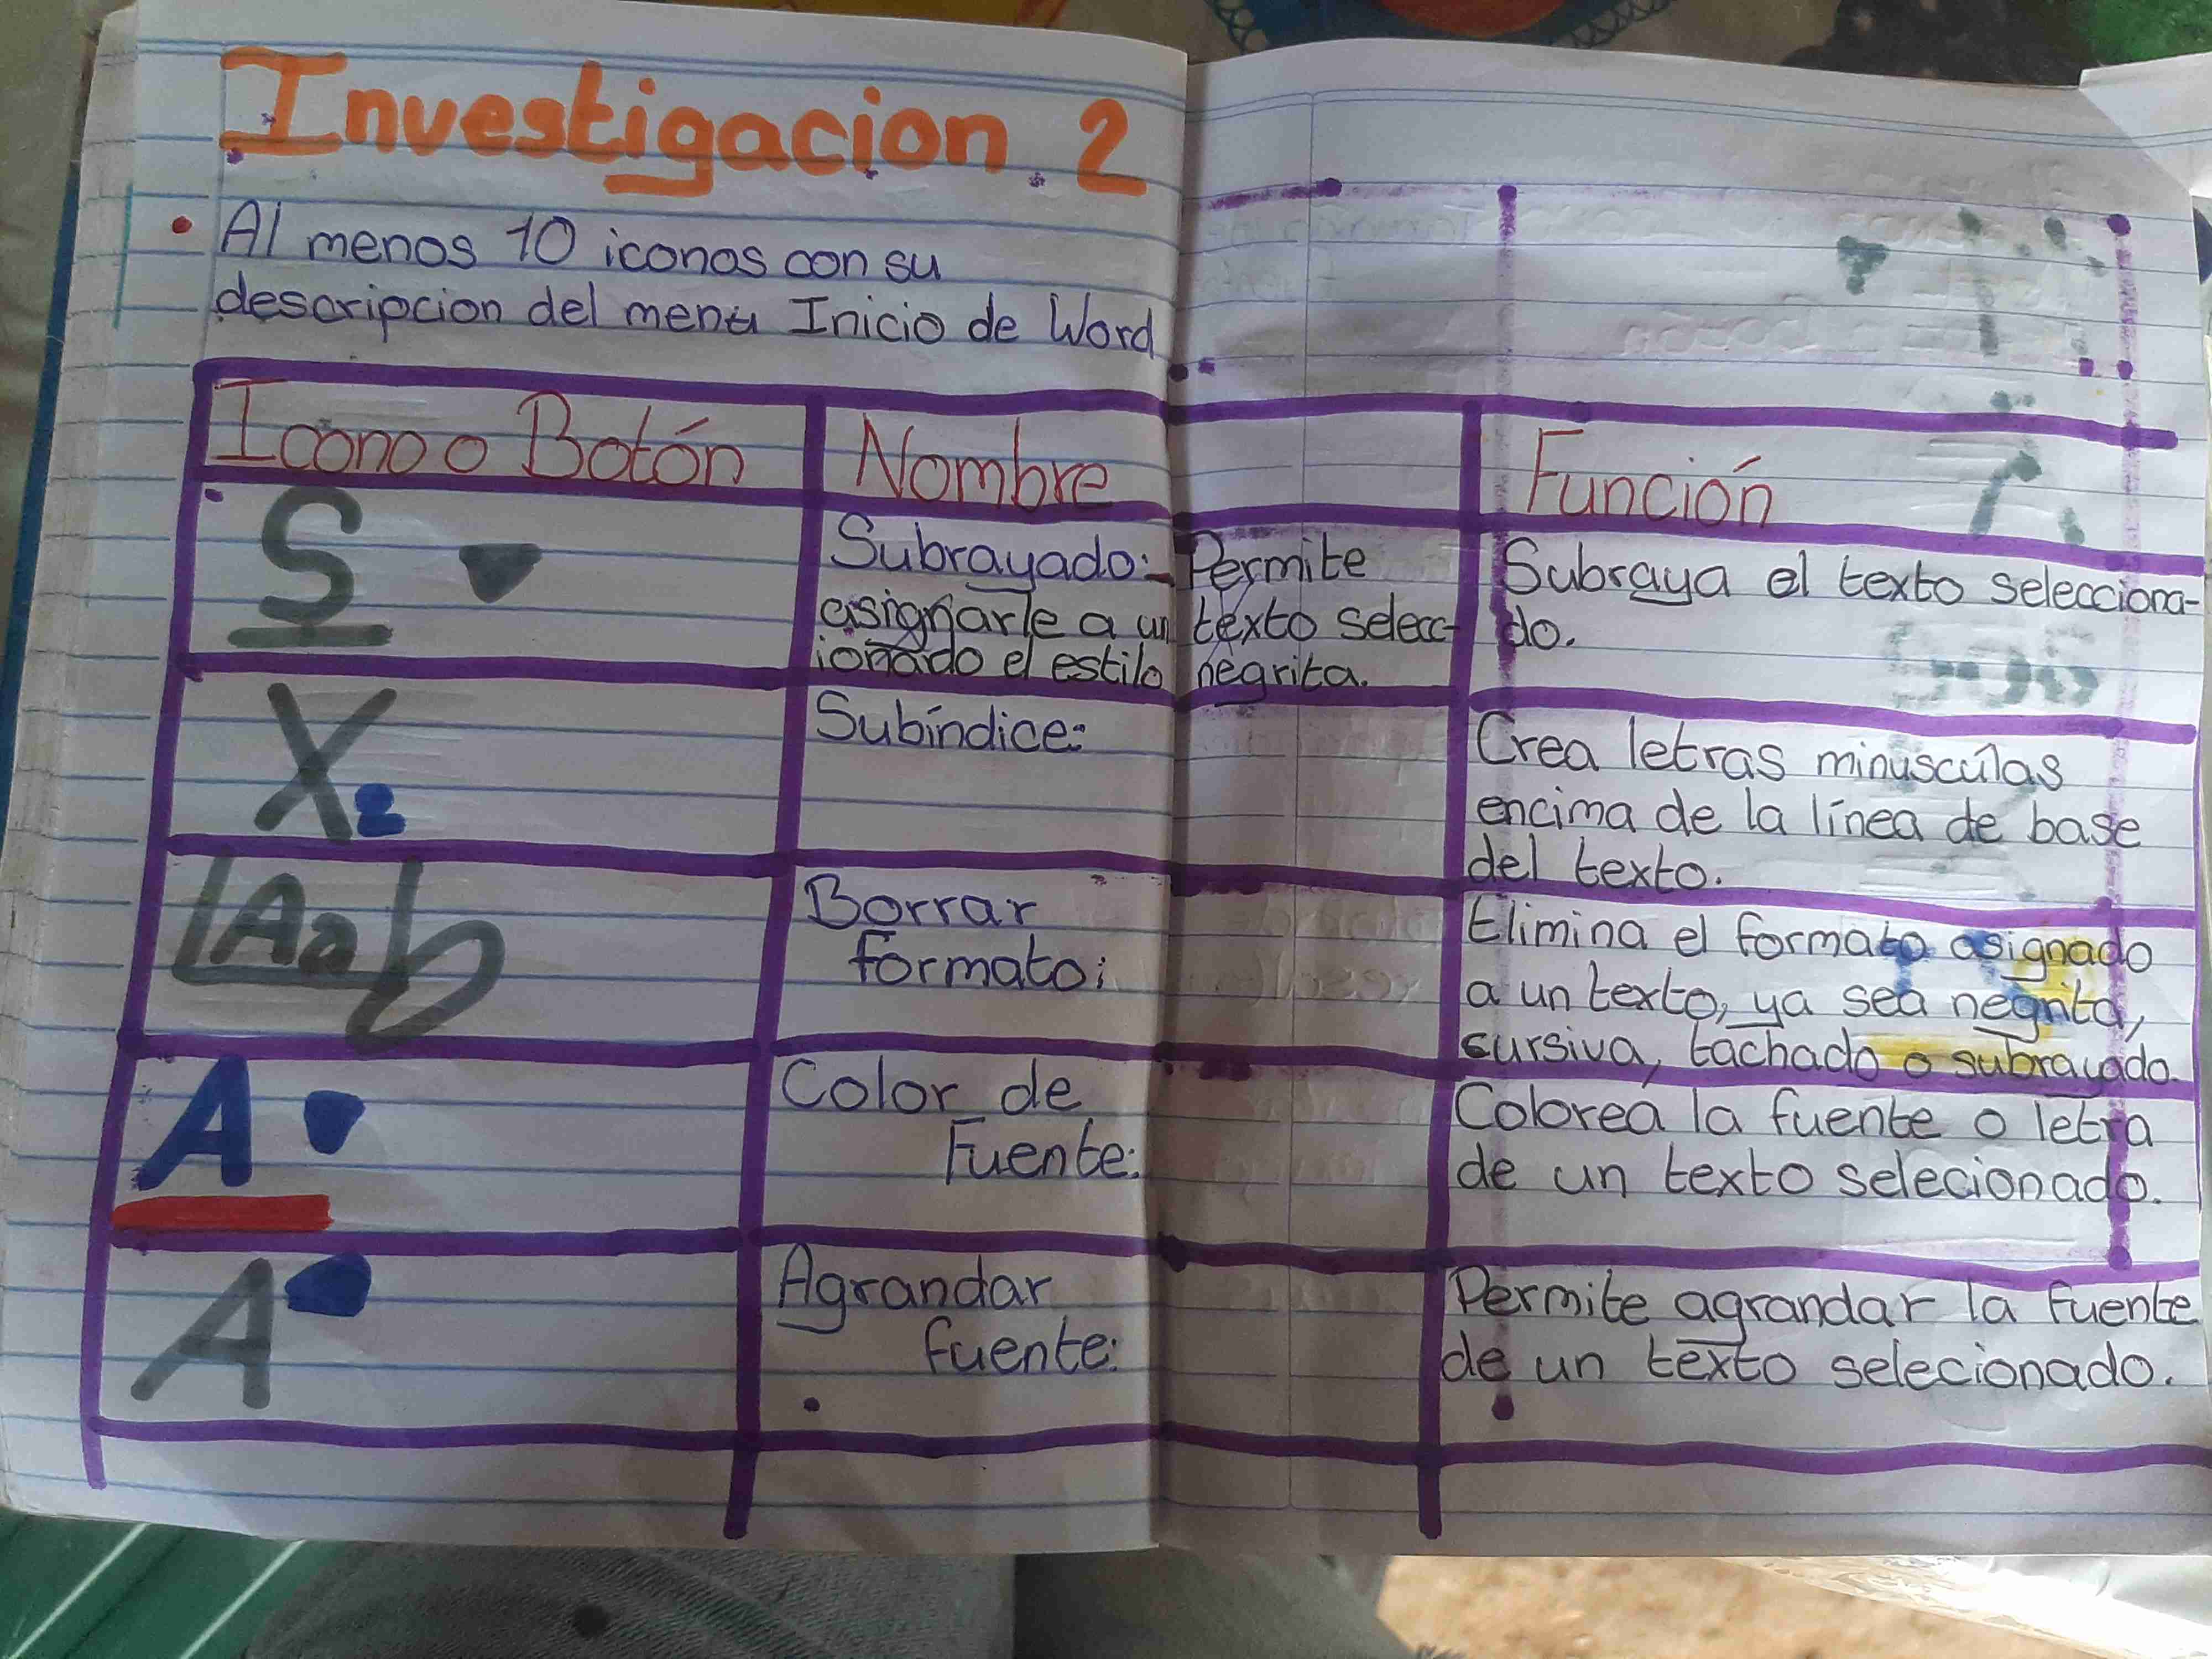 Investigacion 2
• Al menos 10 iconos con su
descripcion del menu Inicio de Word
Icono o Botón Nombre Función
S Subrayado: Permite
asignarle a un texto selecc-
ionado el estilo negrita.
Subraya el texto selecciona-
do.
X2 Subíndice:
Crea letras minuscúlas
encima de la línea de base
del texto.
Aa Borrar
formato:
Elimina el formato asignado
a un texto, ya sea negrita,
cursiva, tachado o subrayado.
A Color de
Fuente:
Colorea la fuente o letra
de un texto selecionado.
A Agrandar
fuente:
Permite agrandar la fuente
de un texto selecionado.